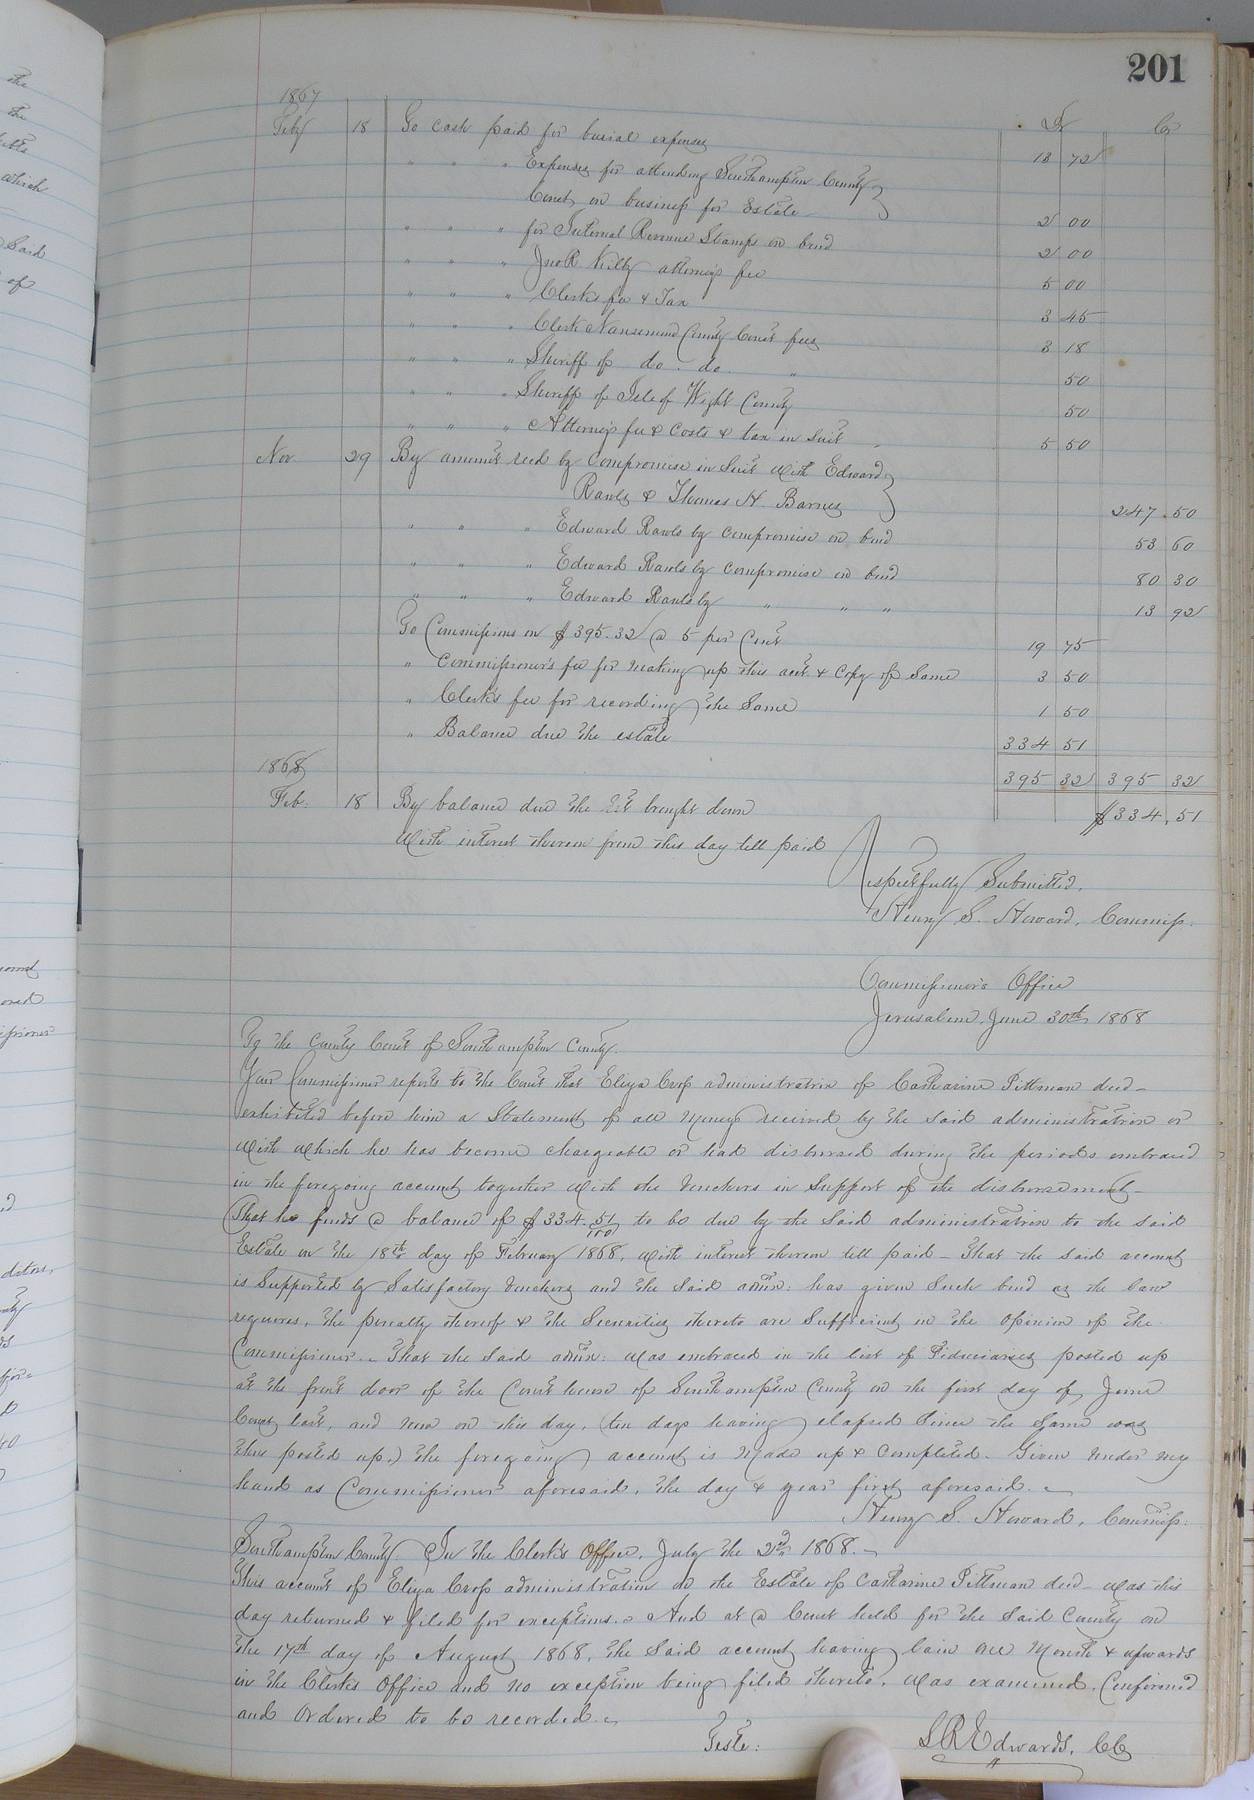 201
1867
Dr Cr
Feby 18 To cash paid for burial expenses 13 72
" " " Expenses for attending Southampton County
Court on business for Estate 2 00
" " " for Internal Revenue Stamps on bond 2 00
" " " Jno R Kilby attorneys fee 5 00
" " " Clerks fee & Tax 3 45
" " " Clerk Nansemond County Court fees 3 18
" " " Sheriff of do. do. " 50
" " " Sheriff of Isle of Wight County 50
" " " Attorneys fee & Costs & tax in Suit 5 50
Nov 29 By amount recd by Compromise in Suit with Edward
Rawls & Thomas H. Barnes 247.50
" " " Edward Rawls by compromise on bond 53 60
" " " Edward Rawls by compromise on bond 80 30
" " " Edward Rawls by " " " 13 92
To Commissions on $395.32 @ 5 per Cent 19 75
" Commissioner's fee for making up this acct. & Copy of Same 3 50
" Clerk's fee for recording the Same 1 50
" Balance due the estate 334 51
1868
395 32 395 32
Feb. 18 By balance due the Est brought down $334.51
With interest thereon from this day till paid
Respectfully Submitted,
Henry S. Howard, Commiss.
Commissioner's Office
Jerusalem, June 30th 1868
To the County Court of Southampton County.
Your Commissioner reports to the Court that Eliza Crop administratrix of Catharine Pittman decd—
exhibited before him a Statement of all Moneys received by the said administratrix or
with which he has become chargeable or had disbursed during the periods embraced
in the foregoing account together with the Vouchers in Support of the disbursement—
That he finds a balance of $334.51/100 to be due by the Said administratrix to the said
Estate on the 18th day of February 1868, with interest thereon till paid— That the said account
is Supported by Satisfactory Vouchers and the Said admn: has given Such bond as the law
requires, the penalty thereof & the Securities thereto are Sufficient in the opinion of the
Commissioner.— That the Said admn: was embraced in the list of Fiduciaries posted up
at the front door of the Court house of Southampton County on the first day of June
Court last, and now on this day, (ten days having elapsed Since the Same was
thus posted up,) the foregoing account is Made up & Completed. Given under my
hand as Commissioner aforesaid, the day & year first aforesaid.—
Henry S. Howard, Commiss:
Southampton County. In the Clerk's Office, July the 2d 1868.—
This account of Eliza Crop administratrix to the Estate of Catharine Pittman decd— was this
day returned & filed for exceptions.— And at a Court held for the Said County on
the 17th day of August 1868, the Said account having lain one Month & upwards
in the Clerks Office and no exception being filed thereto, was examined, Confirmed
and Ordered to be recorded.—
Teste: L R Edwards, CC